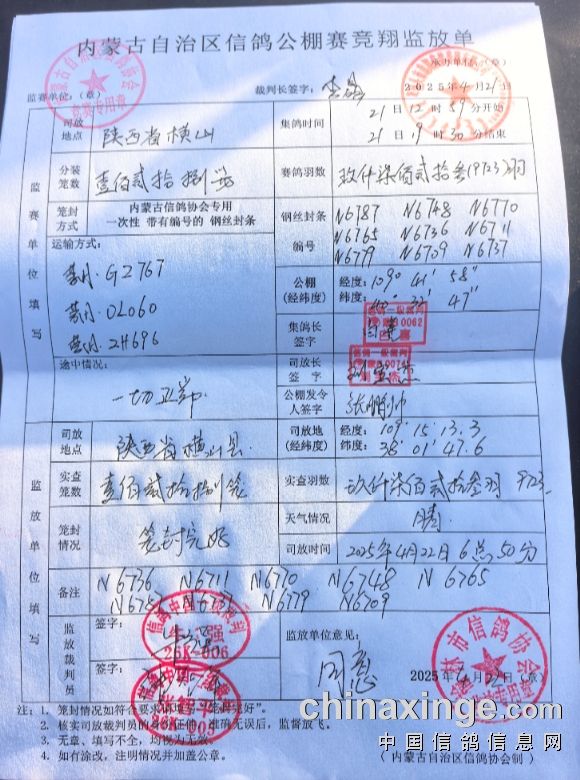 内蒙古自治区信鸽公棚赛竞翔监放单
监赛单位:(章) 裁判长签字: 2025年4月21日
司放地点 陕西省横山 集鸽时间 21日12时59分开始
21日19时30分结束
分装笼数 壹佰贰拾捌笼 赛鸽羽数 玖仟柒佰贰拾叁(9723)羽
笼封方式 内蒙古信鸽协会专用 一次性 带有编号的 钢丝封条
钢丝封条编号 N6787 N6748 N6770
N6765 N6736 N6711
N6779 N6709 N6737
监赛单位填写
运输方式:
蒙H·G2767
蒙H·0L060
蒙H·2H696
公棚(经纬度) 经度:109° 41′ 58″
纬度:40° 33′ 47″
集鸽长签字
司放长签字
途中情况: 一切正常
公棚发令人签字 张鹏帅
司放地点 陕西省横山县 司放地(经纬度) 经度:109°15.13.3
纬度:38°01′47.6
实查笼数 壹佰贰拾捌笼 实查羽数 玖仟柒佰贰拾叁羽 9723
笼封情况 笼封完好 天气情况 晴
司放时间 2025年4月22日6点50分
监放单位填写
备注 N6736 N6711 N6770 N6748 N6765
N6787 N6737 N6779 N6709
监放裁判员
签字:
签字:
监放单位意见:
同意
2025年4月22日(章)
26K-006
注:1、笼封情况如符合要求请填写“笼封完好”。
2、核实司放裁判员的身份证件,准确无误后,监督放飞。
3、无章、填写不全,均视为无效。
4、如有涂改,注明情况并加盖公章。
(内蒙古自治区信鸽协会制)
chinaxinge.com
中国信鸽信息网